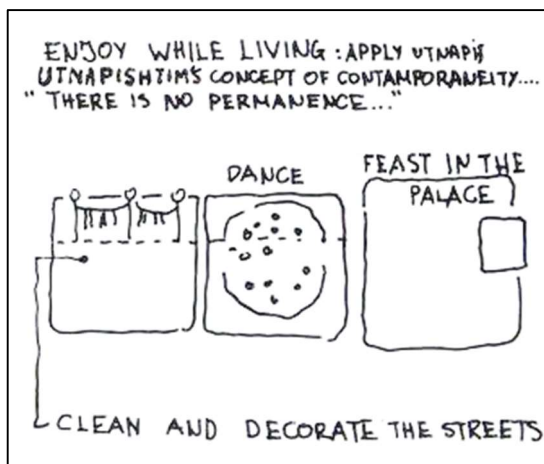 ENJOY WHILE LIVING : APPLY UTNAPIS
UTNAPISHTIM'S CONCEPT OF CONTAMPORANEITY....
"THERE IS NO PERMANENCE..."
DANCE
FEAST IN THE
PALACE
CLEAN AND DECORATE THE STREETS